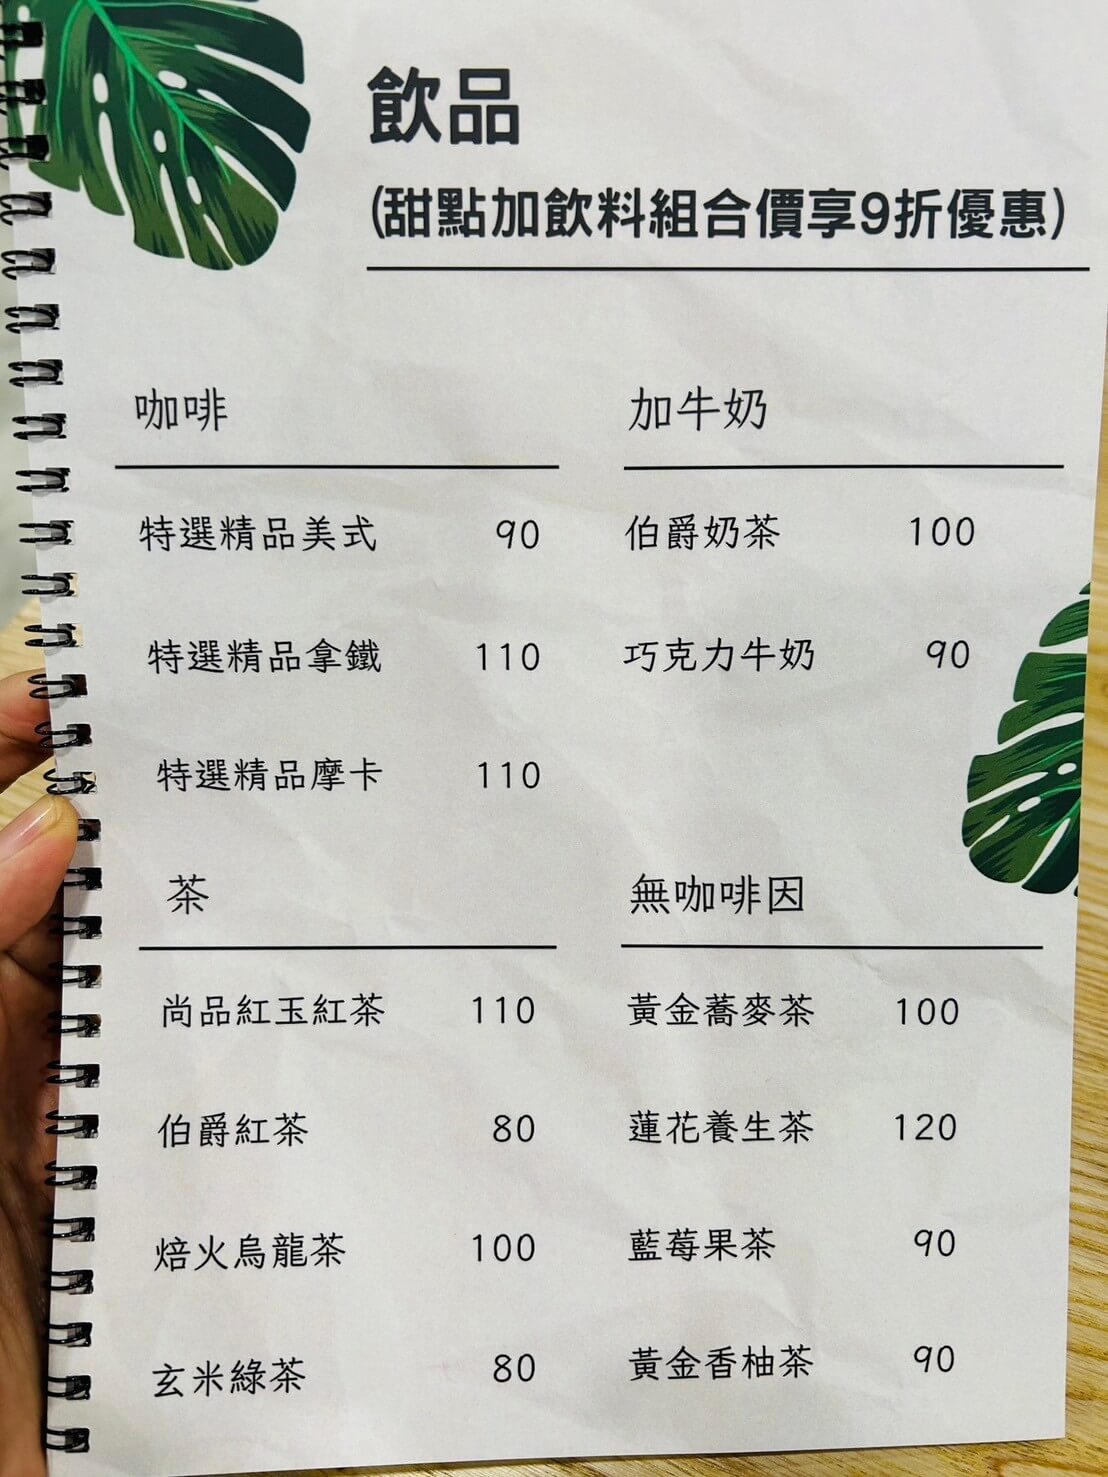 飲品
(甜點加飲料組合價享9折優惠)
咖啡
特選精品美式 90
特選精品拿鐵 110
特選精品摩卡 110
加牛奶
伯爵奶茶 100
巧克力牛奶 90
茶
尚品紅玉紅茶 110
伯爵紅茶 80
焙火烏龍茶 100
玄米綠茶 80
無咖啡因
黃金蕎麥茶 100
蓮花養生茶 120
藍莓果茶 90
黃金香柚茶 90